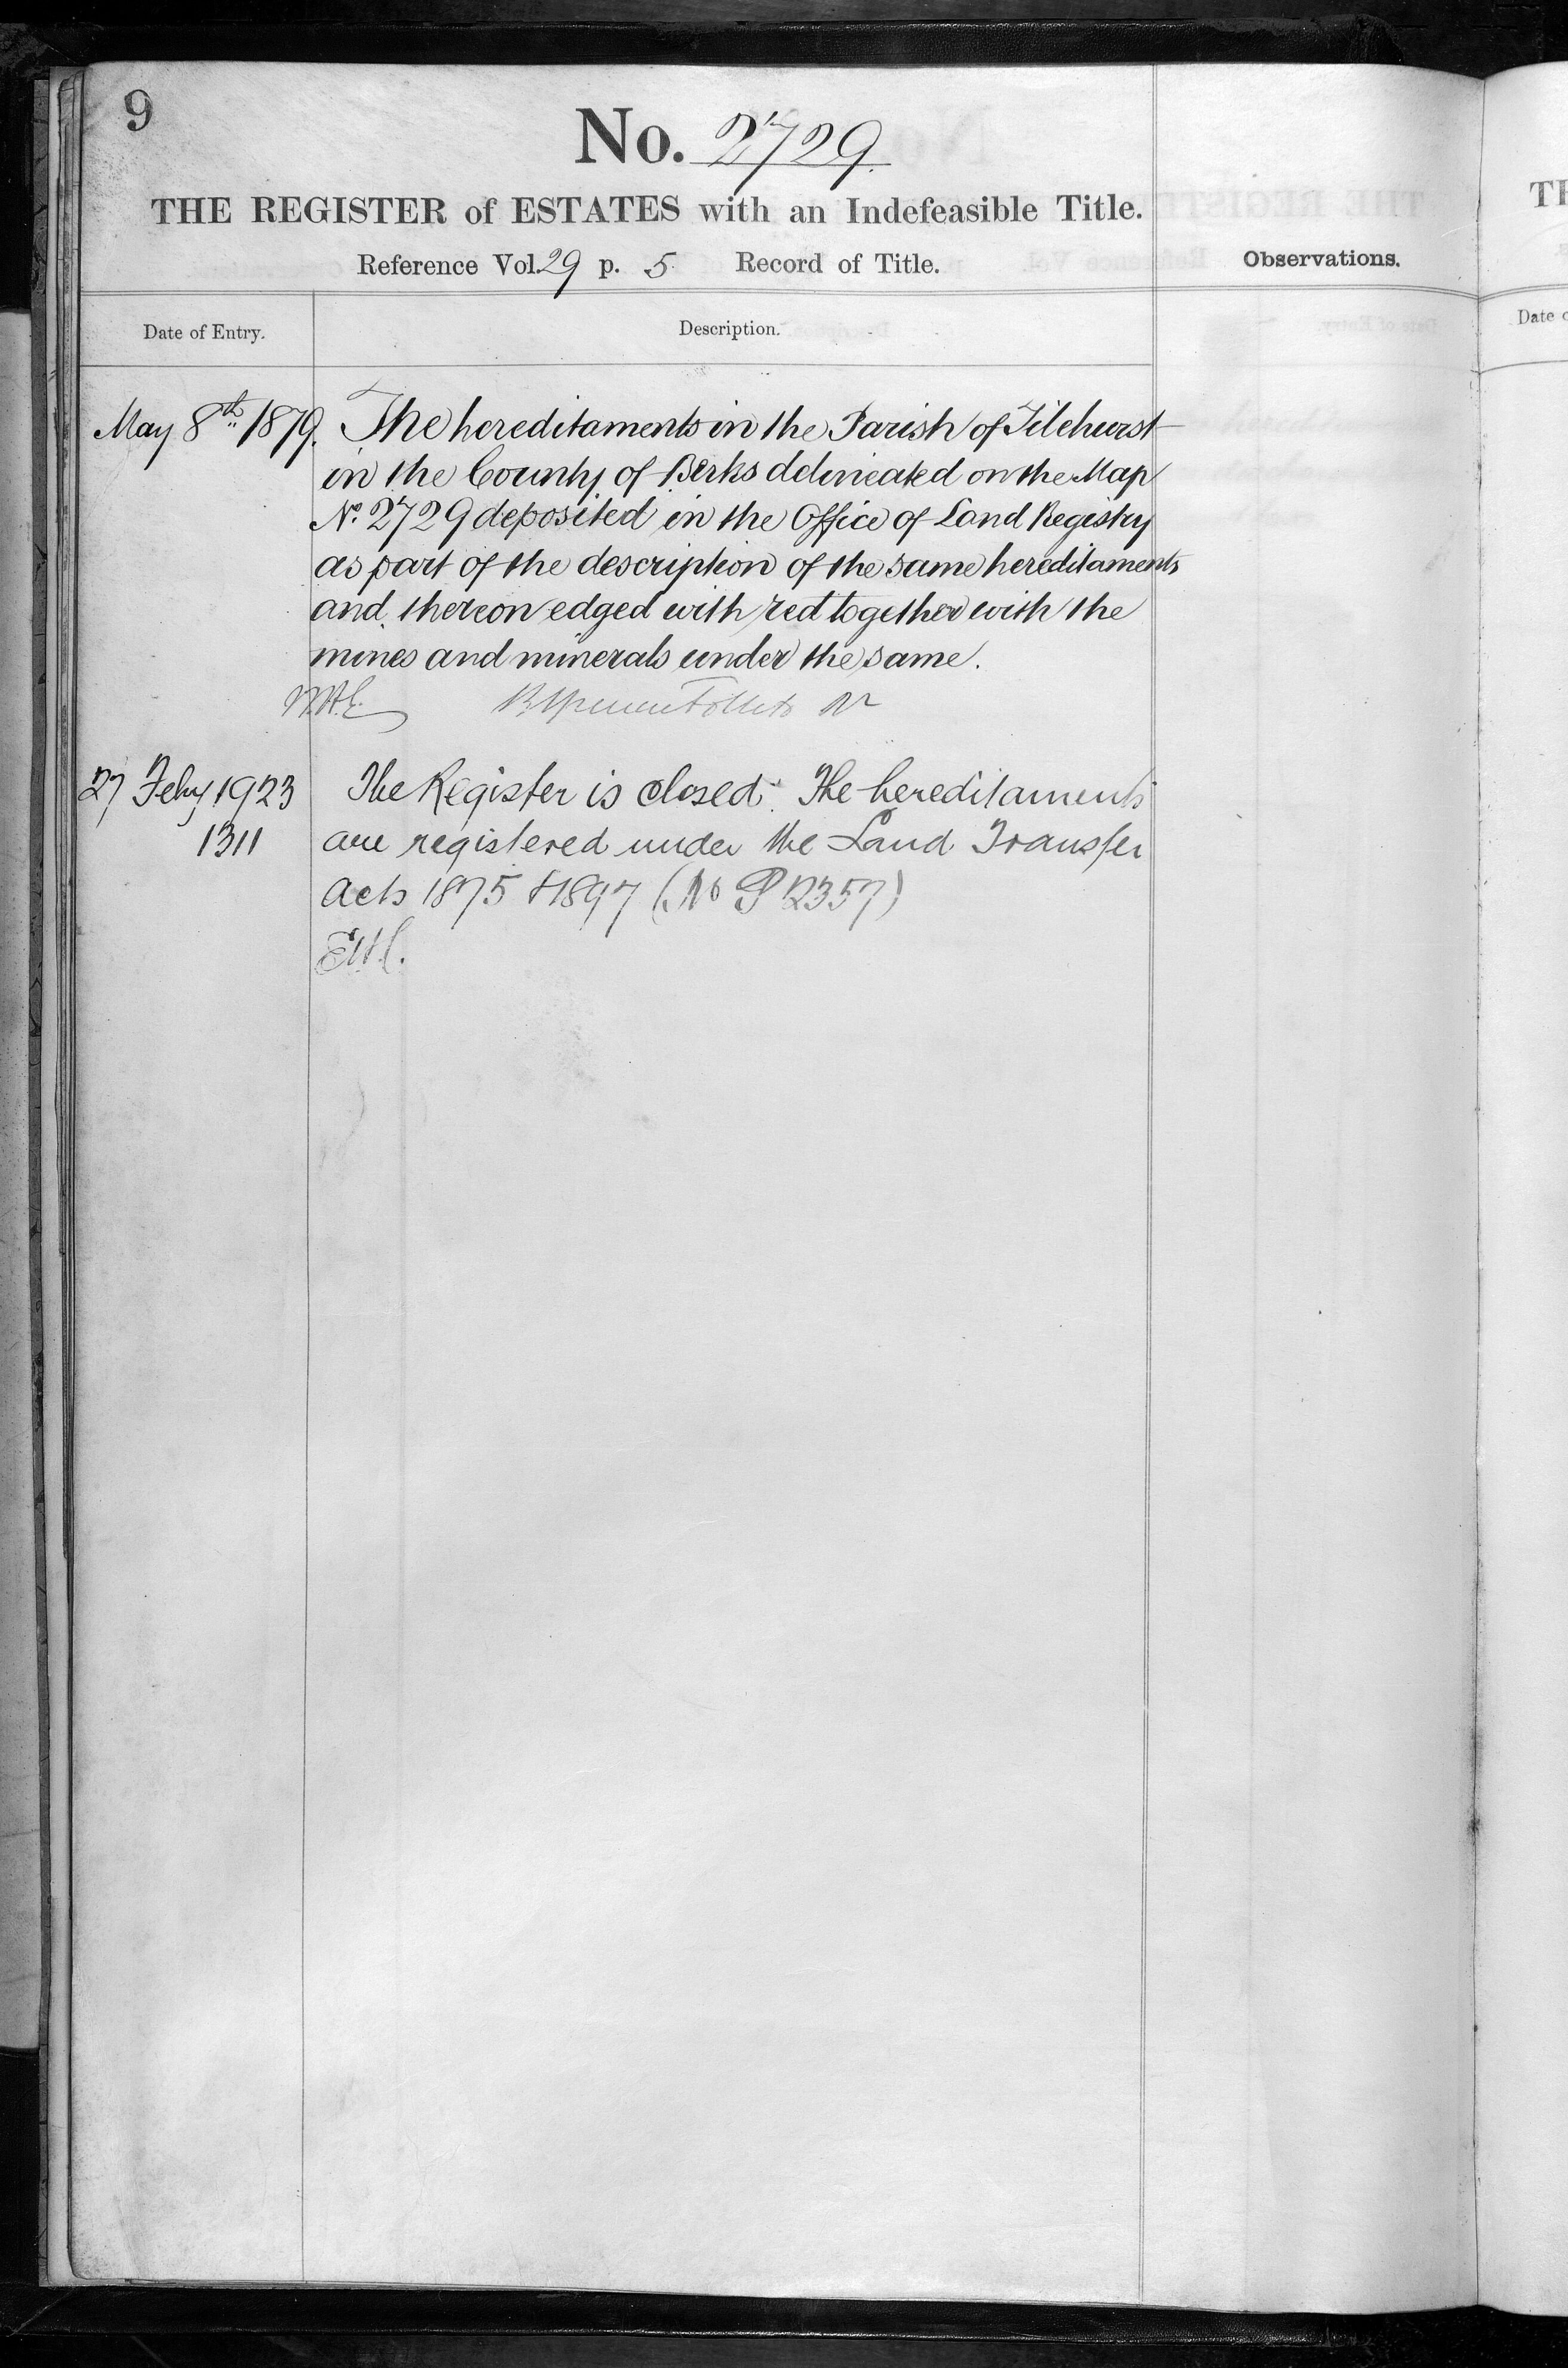 9
No. 2729.
THE REGISTER of ESTATES with an Indefeasible Title.
Reference Vol. 29 p. 5 Record of Title.
Observations.
Date of Entry.
Description.
May 8th 1879. The hereditaments in the Parish of Tilehurst
in the County of Berks delineated on the Map
No. 2729 deposited in the Office of Land Registry
as part of the description of the same hereditaments
and thereon edged with red together with the
mines and minerals under the same.
27 Feby 1923 The Register is closed. The hereditaments
1311 are registered under the Land Transfer
Acts 1875 & 1897 (No P 12357)
TH
Date o